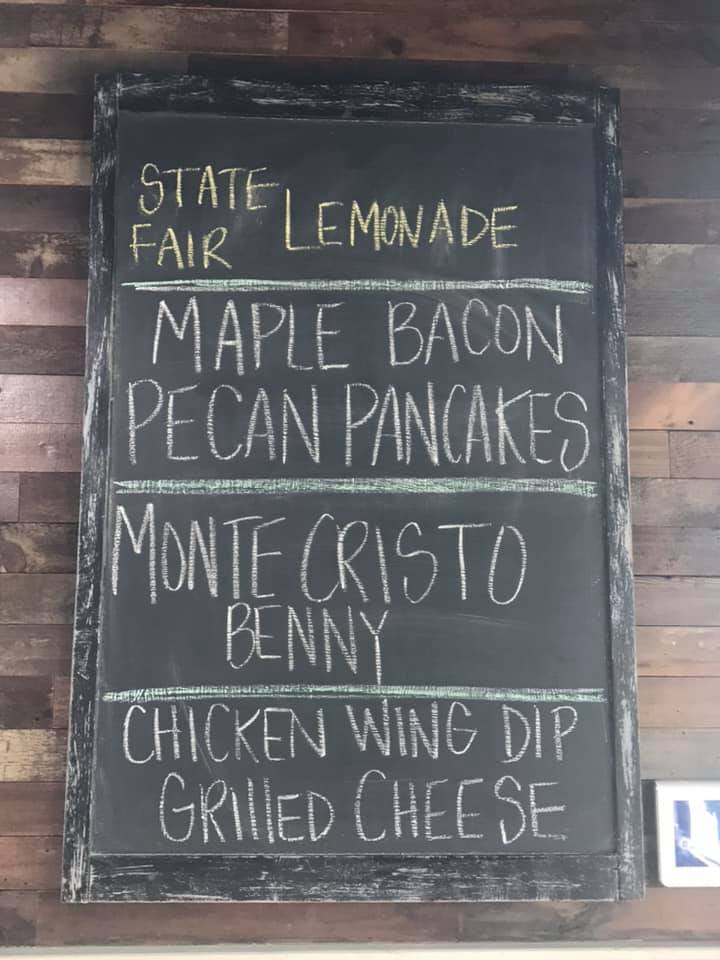 STATE
FAIR LEMONADE
MAPLE BACON
PECAN PANCAKES
MONTE CRISTO
BENNY
CHICKEN WING DIP
GRIllED CHEESE